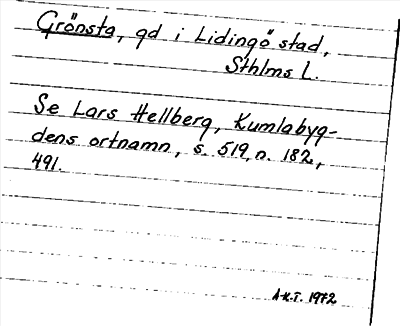 Grönsta, gd i Lidingö stad,
Sthlms L.
Se Lars Hellberg, Kumlabyg-
dens ortnamn, s. 519, n. 182,
491.
A-K.T. 1972